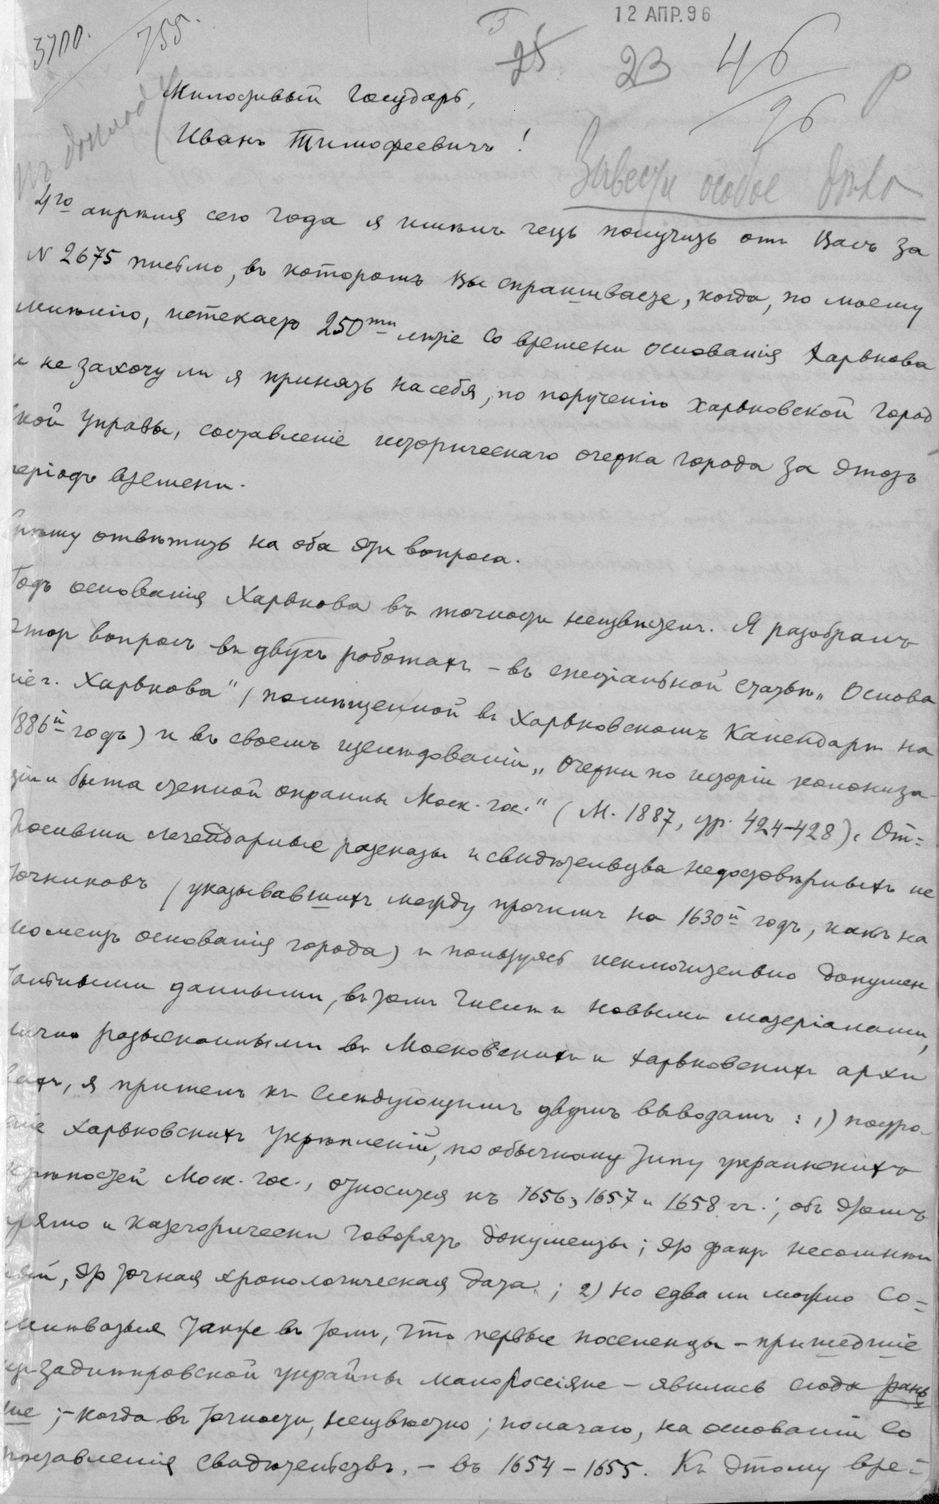 12 АПР. 96
3700.
755.
25
23
46
96
Въ докладъ
Милостивый Государь,
Иванъ Тимофеевичъ!
Завести особое дѣло
4го апрѣля сего года я имѣлъ честь получить отъ Васъ за
№ 2675 письмо, въ которомъ Вы спрашиваете, когда, по моему
мнѣнію, истекаетъ 250ти лѣтіе со времени основанія Харькова
и не захочу ли я принять на себя, по порученію Харьковской Город
ской Управы, составленіе историческаго очерка города за этотъ
періодъ времени.
Спѣшу отвѣтить на оба эти вопроса.
Годъ основанія Харькова въ точности неизвѣстенъ. Я разобралъ
этотъ вопросъ въ двухъ работахъ – въ спеціальной статьѣ „Основа
ніе г. Харькова" (помѣщенной въ Харьковскомъ Календарѣ на
1886й годъ) и въ своемъ изслѣдованіи „Очерки по исторіи колониза-
ціи и быта степной окраины Моск. гос." (М. 1887, стр. 424–428). От=
бросивши легендарные разсказы и свидѣтельства недостовѣрныхъ ис
точниковъ (указывавшихъ между прочимъ на 1630й годъ, какъ на
моментъ основанія города) и пользуясь исключительно докумен
тальными данными, въ томъ числѣ и новыми матеріалами,
лично разысканными въ Московскихъ и Харьковскихъ архи
вахъ, я пришелъ къ слѣдующимъ двумъ выводамъ: 1) построе-
ніе Харьковскихъ укрѣпленій, по обычному типу украинскихъ
крѣпостей Моск. гос., относится къ 1656, 1657 и 1658 гг.; объ этомъ
прямо и категорически говорятъ документы; это фактъ несомнѣн
ный, это точная хронологическая дата; 2) но едва ли можно со=
мнѣваться также въ томъ, что первые поселенцы – пришедшіе
изъ Заднѣпровской украйны малороссіяне – явились сюда рань
ше; – когда въ точности, неизвѣстно; полагаю, на основаніи со
поставленія свидѣтельствъ, – въ 1654–1655. Къ этому вре-